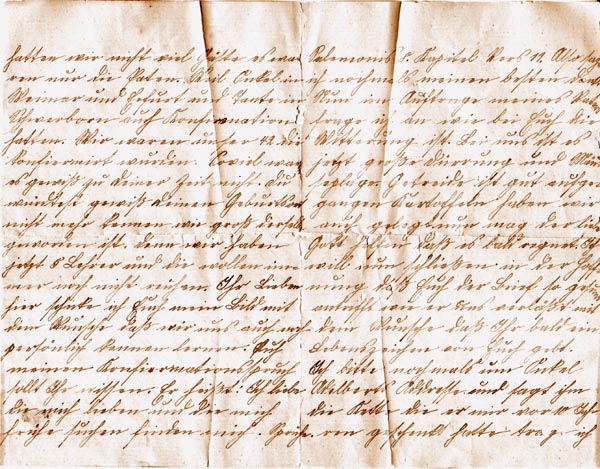 hatten wir nicht viel Gäste es wa-
ren nur die Paten. Weil Onkel in
Weimar und Erfurt und Tante in
auch Konfirmation
hatten. Wir waren unser 42 die
konfirmiert wurden. Soviel war
es gewiß zu Deiner Zeit nicht. Du
würdest gewiß Deinen Geburtsort
nicht mehr kennen wie groß derselbe
geworden ist, denn wir haben
jetzt 8 Lehrer und die wollen im-
mer noch nicht reichen. Ihr Lieben
hier schicke ich Euch mein Bild mit
dem Wunsche daß wir uns auch noch
persönlich kennen lernen. Auch
meinen Konfirmationsspruch
sollt Ihr wissen. Er heißt: Ich liebe
die mich lieben und die mich
frühe suchen finden mich. Sprüche
Salomonis 8. Kapitel Vers 17. Also sag
ich nochmals meinen besten Dank
Nun im Auftrage meines Vaters
frage ich an wie bei Euch die
Witterung ist. Bei uns ist es
jetzt große Dürrung und Mäu-
seplage. Getreide ist gut aufge-
gangen Kartoffeln haben wir
auch genug nur mag der liebe
Gott geben daß es bald regnet. Ich
will nun schließen in der Hoff-
nung daß Euch der Brief so gesund
antrifft wie er uns verläßt mit
dem Wunsche daß Ihr bald ein
Lebenszeichen von Euch gebt.
Ich bitte nochmals um Onkel
Adelberts Addresse und sagt ihm
die Kette die er mir vor 10 Jah-
ren geschenkt hatte trage ich